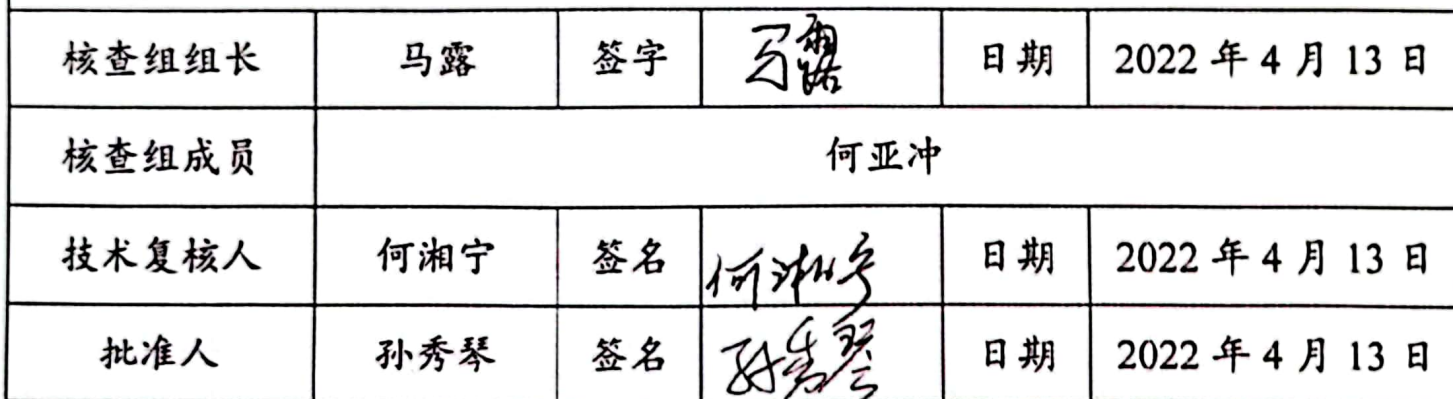 核查组组长 马露 签字 马露 日期 2022 年 4 月 13 日
核查组成员 何亚冲
技术复核人 何湘宁 签名 何湘宁 日期 2022 年 4 月 13 日
批准人 孙秀琴 签名 孙秀琴 日期 2022 年 4 月 13 日